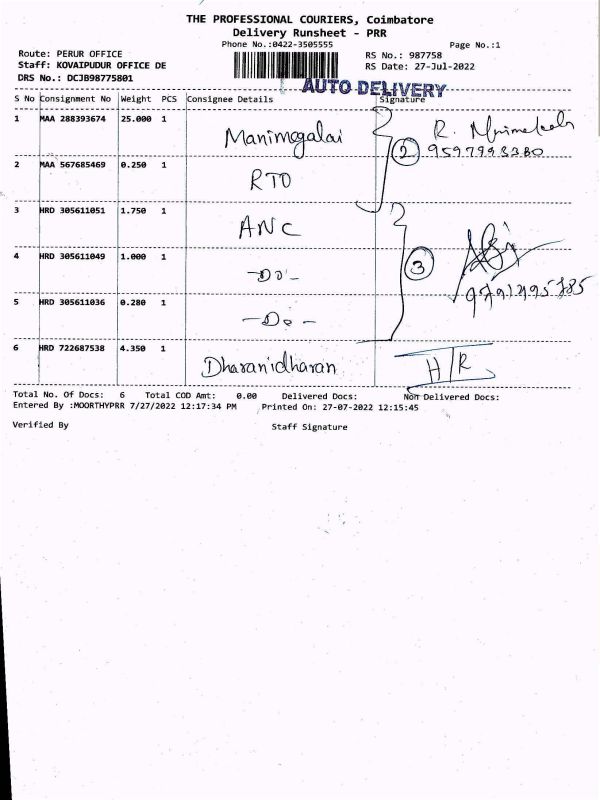 THE PROFESSIONAL COURIERS, Coimbatore
Delivery Runsheet - PRR
Phone No.:0422-3505555 Page No.:1
Route: PERUR OFFICE RS No.: 987758
Staff: KOVAIPUDUR OFFICE DE RS Date: 27-Jul-2022
DRS No.: DCJB98775801
AUTO DELIVERY
S No Consignment No Weight PCS Consignee Details Signature
1 MAA 288393674 25.000 1 Manimegalai R.
2 9597998380
2 MAA 567685469 0.250 1 RTO
3 HRD 305611051 1.750 1 ANC
4 HRD 305611049 1.000 1 -Do- 3
9791295785
5 HRD 305611036 0.280 1 -Do-
6 HRD 722687538 4.350 1 Dharanidharan H/R
Total No. Of Docs: 6 Total COD Amt: 0.00 Delivered Docs: Non Delivered Docs:
Entered By :MOORTHYPRR 7/27/2022 12:17:34 PM Printed On: 27-07-2022 12:15:45
Verified By Staff Signature